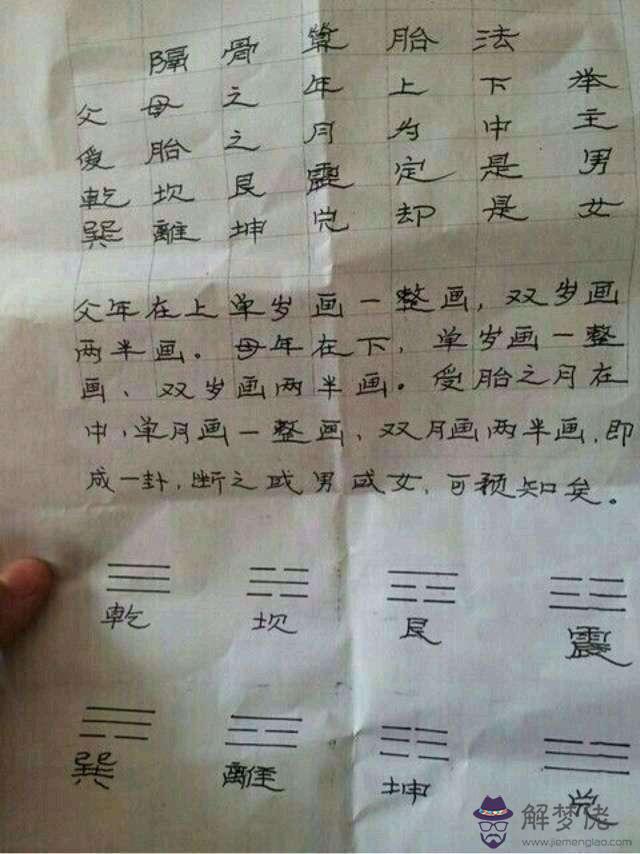 隔骨算胎法
父母之年上下举
受胎之月为中主
乾坎艮震定是男
巽離坤兑却是女
父年在上单岁画一整画，双岁画
两半画。母年在下，单岁画一整
画、双岁画两半画。受胎之月在
中，单月画一整画、双月画两半画，即
成一卦，断之或男或女，可预知矣。
乾 坎 艮 震
巽 離 坤 兑
解梦佬
www.jiemenglao.com